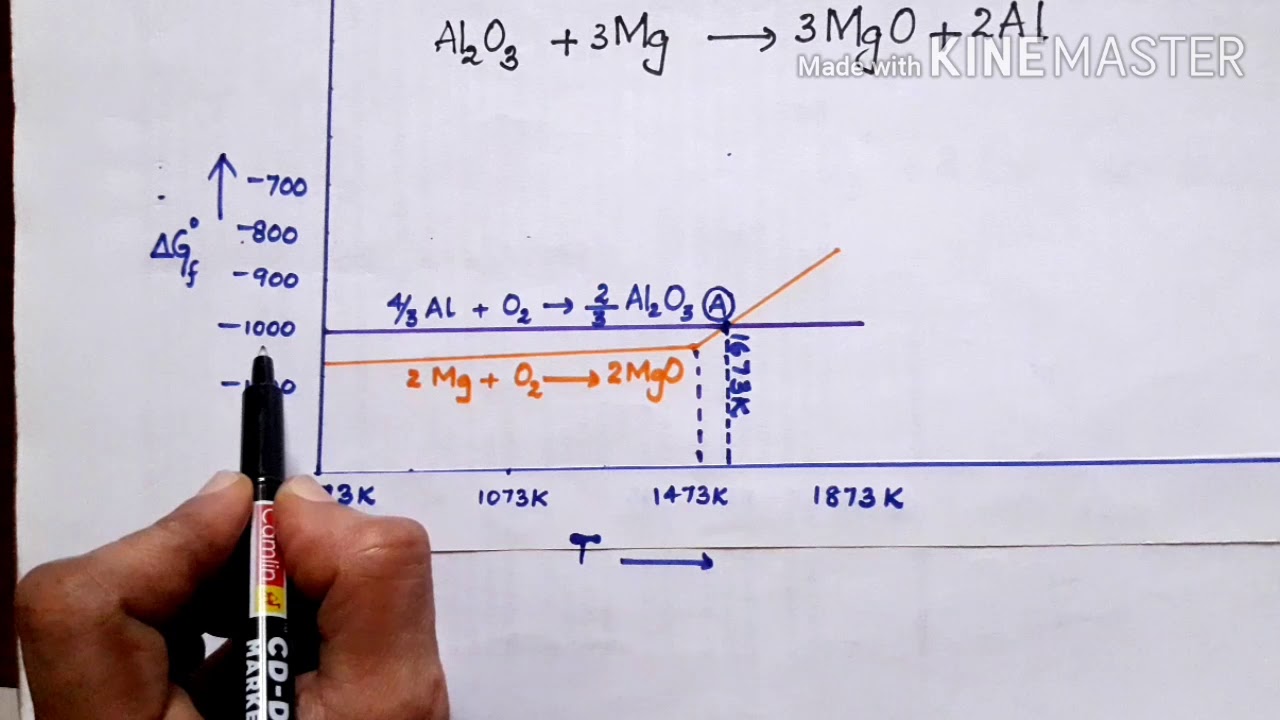 Al₂O₃ + 3Mg → 3MgO + 2Al
Made with KINEMASTER
-700
-800
ΔG°f
-900
4/3 Al + O₂ → 2/3 Al₂O₃ A
-1000
1673K
2 Mg + O₂ → 2MgO
3K 1073K 1473K 1873K
T →
Camlin
CD-D
MARKE